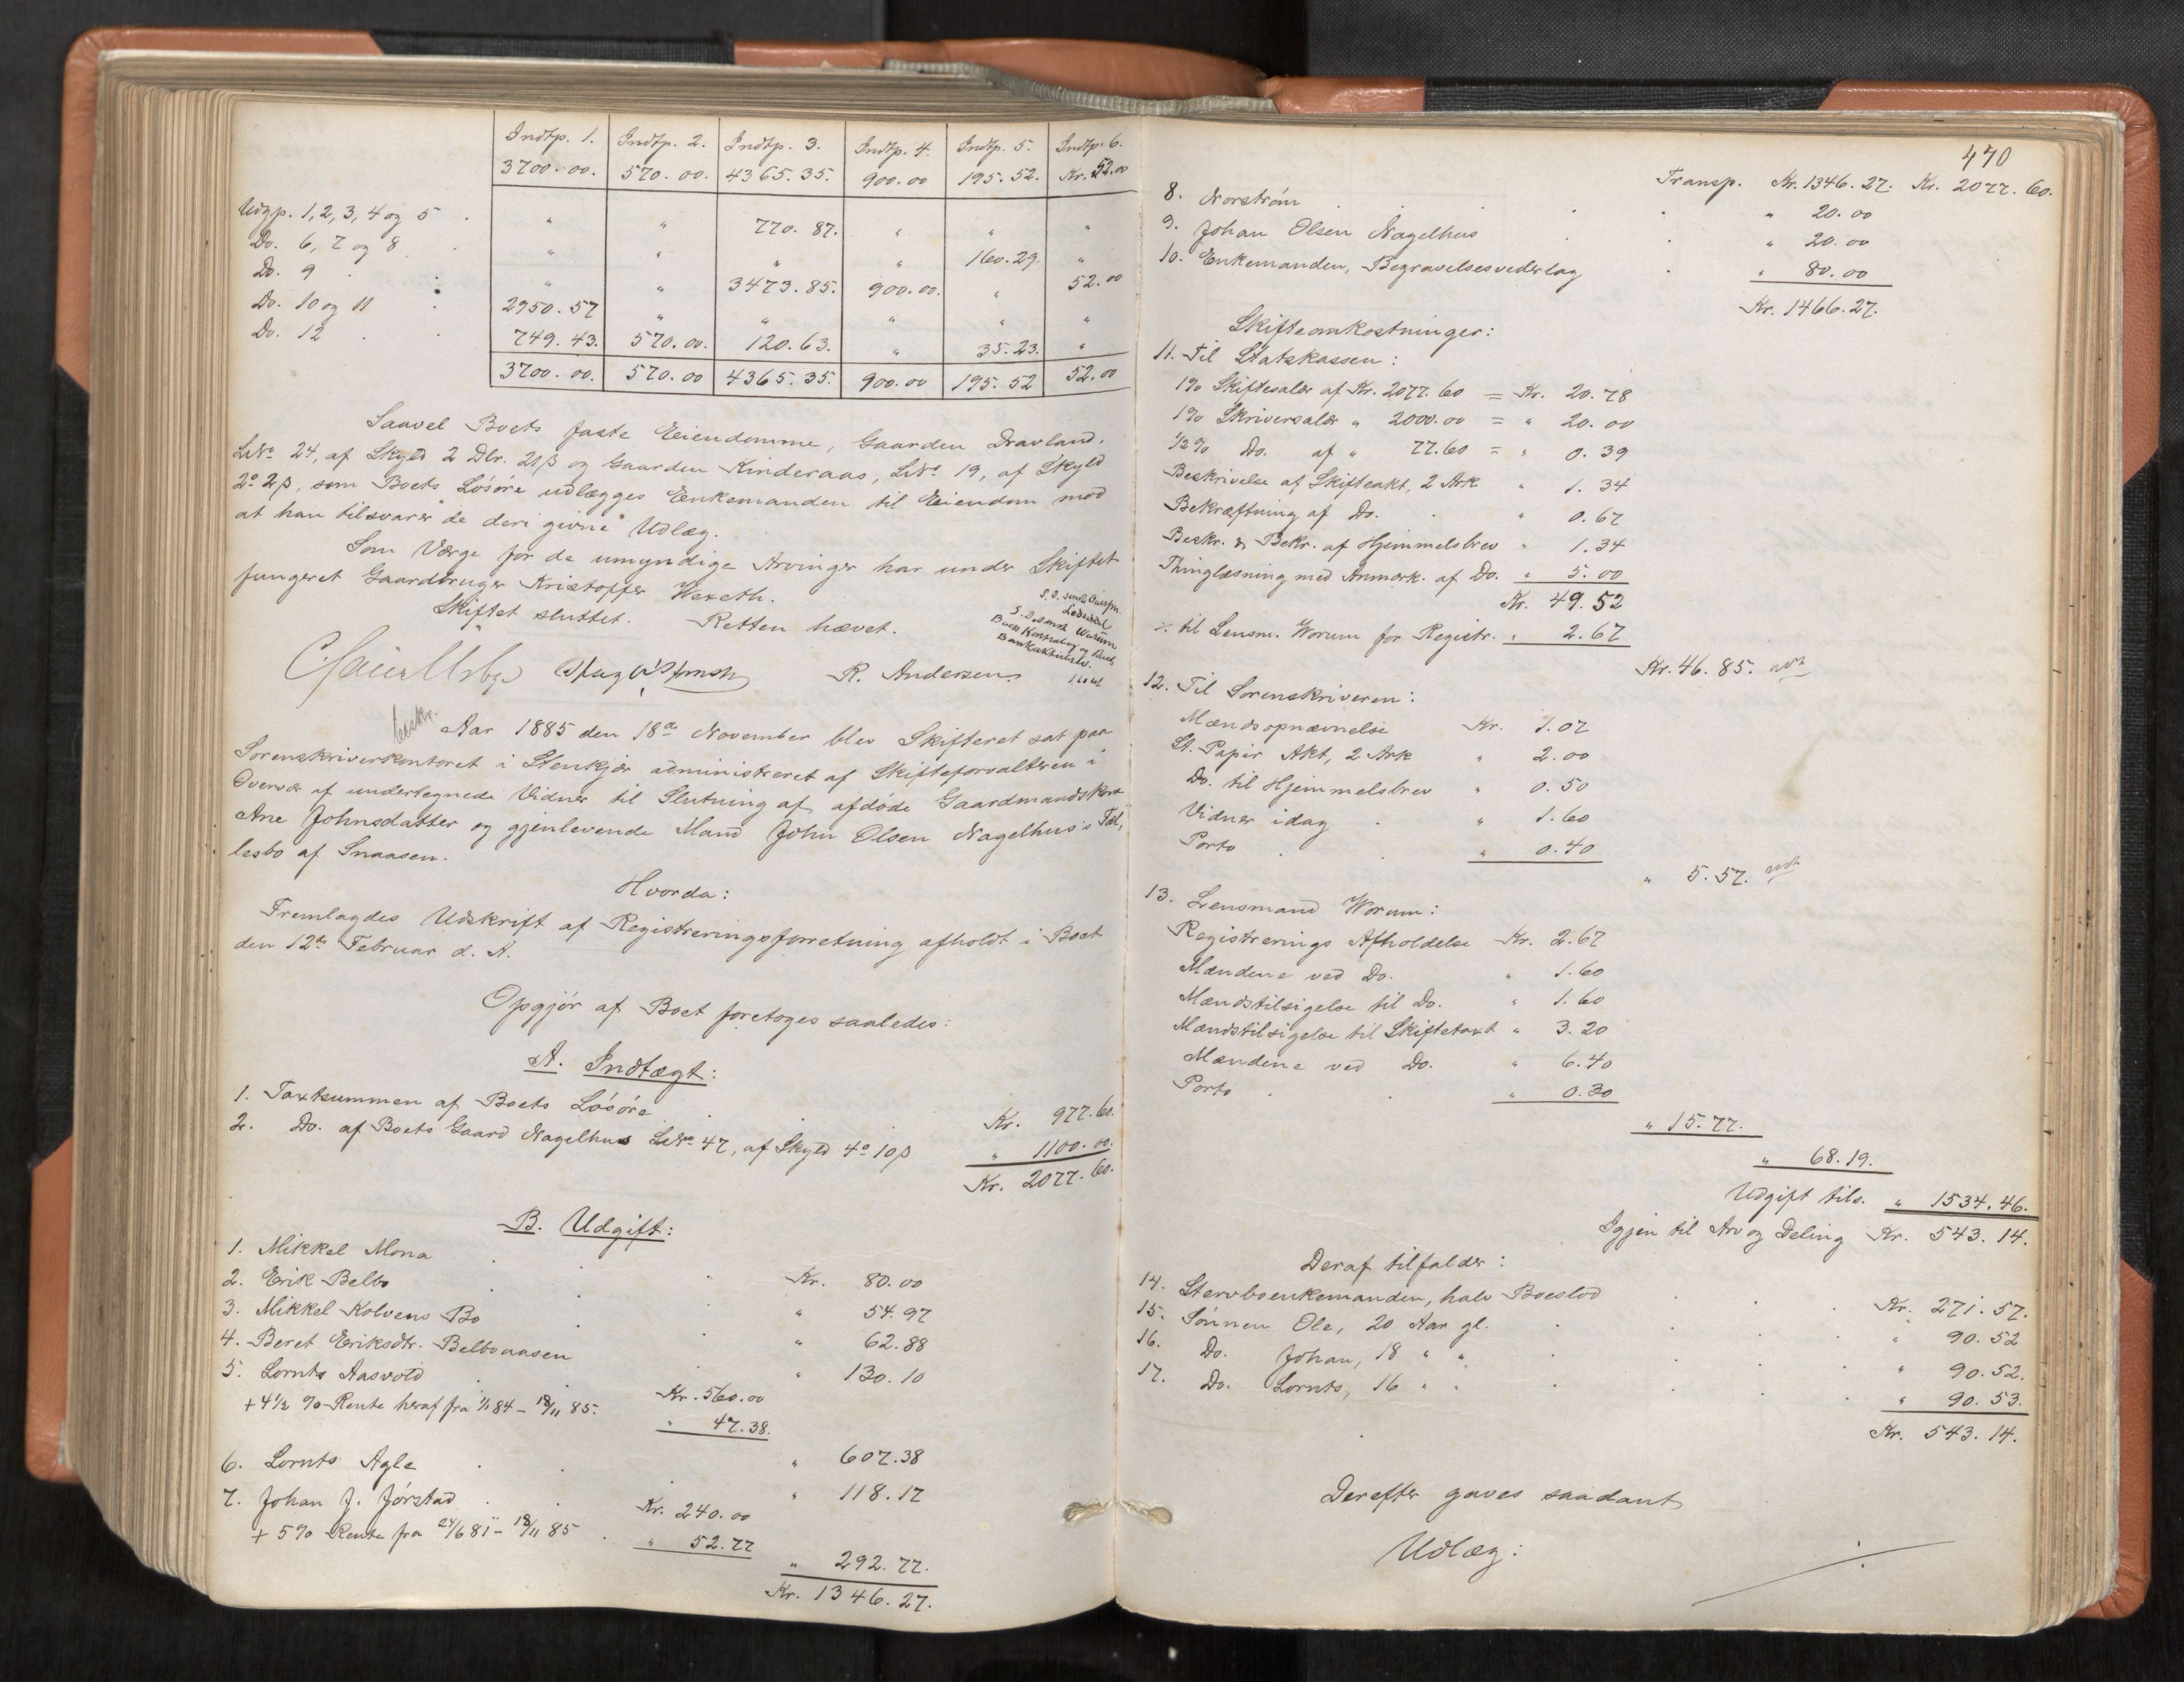 Indtp. 1. Indtp. 2. Indtp. 3. Indtp. 4. Indtp. 5. Indtp. 6.
3700.00. 570.00. 4365.35. 900.00 195.52. Kr. 52.00
Udgp. 1, 2, 3, 4 og 5 . " " 770.87. " " "
Do. 6, 7 og 8 . " " " " 160.29. "
Do. 9 . " " 3473.85. 900.00. " 52.00
Do. 10 og 11 . 2950.57 " " " " "
Do. 12 . 749.43. 570.00. 120.63. " 35.23. "
3700.00. 570.00 4365.35. 900.00 195.52 52.00
Saavel Boets faste Eiendomme, Gaarden Dravland,
LNo 24, af Skyld 2 Dlr. 21 ß og Gaarden Kinderaas, LNo 19, af Skyld
2o 2 ß, som Boets Løsøre udlægges Enkemanden til Eiendom mod
at han tilsvarer de deri givne Udlæg.
Som Værge for de umyndige Arvinger har under Skiftet
fungeret Gaardbruger Kristoffer Hexeth.
Skiftet sluttet. Retten hævet.
R. Andersen.
beskr.
Aar 1885 den 18de November blev Skifteret sat paa
Sorenskriverkontoret i Stenkjær administreret af Skifteforvalteren i
Overvær af undertegnede Vidner til Slutning af afdøde Gaardmandskone
Ane Johnsdatter og gjenlevende Mand John Olsen Nagelhus's Fæl,
lesbo af Snaasen.
Hvorda:
Fremlagdes Udskrift af Registreringsforretning afholdt i Boet
den 12te Februar d. A.
Opgjør af Boet foretoges saaledes:
A. Indtægt:
1. Taxtsummen af Boets Løsøre . . Kr. 977.60.
2. Do. af Boets Gaard Nagelhus LNo 47, af Skyld 4o 10 ß " 1100.00.
Kr. 2077.60.
B. Udgift:
1. Mikkel Mona . . . Kr. 80.00
2. Erik Belbo . . " 54.97
3. Mikkel Kolvens Bo . . " 62.88
4. Beret Eriksdtr. Belboaasen . " 130.10
5. Lornts Aasvold . . Kr. 560.00
+ 4½ % Rente heraf fra 1/1 84 - 18/11 85. " 47.38.
" 607.38
6. Lornts Agle . . " 118.17
7. Johan J. Jørstad . Kr. 240.00
+ 5 % Rente fra 24/6 81 - 18/11 85 . " 52.77
" 292.77.
Kr. 1346.27.
470
Transp. Kr. 1346.27. Kr. 2077.60.
8. Norstrøm . . " 20.00
9. Johan Olsen Nagelhus . . " 20.00
10. Enkemanden, Begravelsesvederlag . " 80.00
Kr. 1466.27.
Skifteomkostninger:
11. Til Statskassen:
1 % Skiftesalær af Kr. 2077.60 = Kr. 20.78
1 % Skriversalær " 2000.00 = " 20.00
½ % Do. af " 77.60 = " 0.39
Beskrivelse af Skifteakt, 2 Ark " 1.34
Bekræftning af Do. . " 0.67
Beskr. & Bekr. af Hjemmelsbrev " 1.34
Thinglæsning med Anmærk. af Do. " 5.00
Kr. 49.52
÷ til Lensm. Worum for Registr. " 2.67
Kr. 46.85.
12. Til Sorenskriveren:
Mændsopnævnelse Kr. 1.07
St. Papir Akt, 2 Ark " 2.00
Do. til Hjemmelsbrev " 0.50
Vidner idag . " 1.60
Porto . . " 0.40
" 5.57.
13. Lensmand Worum:
Registrerings Afholdelse Kr. 2.67
Mændene ved Do. " 1.60
Mændstilsigelse til Do. " 1.60
Mændstilsigelse til Skiftetaxt " 3.20
Mændene ved Do. " 6.40
Porto . . " 0.30
" 15.77.
" 68.19.
Udgift tils. " 1534.46.
Igjen til Arv og Deling Kr. 543.14.
Deraf tilfalder:
14. Stervboenkemanden, halv Boeslod . . Kr. 271.57.
15. Sønnen Ole, 20 Aar gl. . . . " 90.52
16. Do. Johan, 18 " " . . . " 90.52.
17. Do. Lornts, 16 " " . . . " 90.53.
Kr. 543.14.
Derefter gaves saadant
Udlæg: